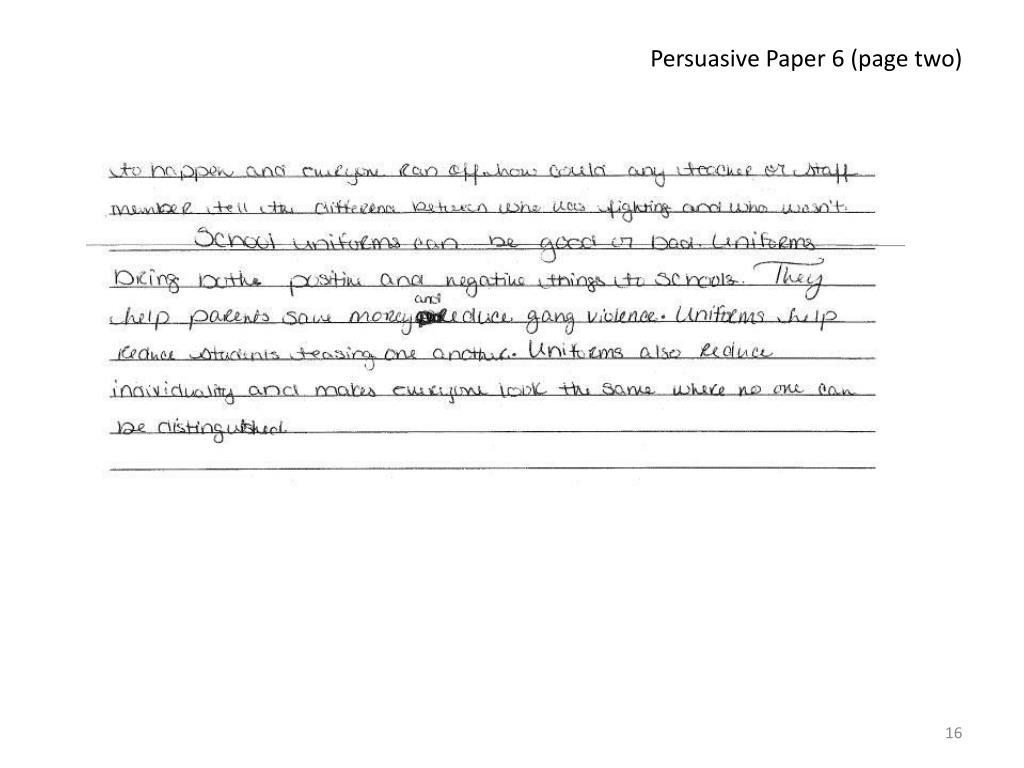 Persuasive Paper 6 (page two)
to happen and everyone ran off how could any teacher or staff
member tell the difference between who was fighting and who wasn't.
School uniforms can be good or bad. Uniforms
bring both positive and negative things to schools. They
help parents save money and reduce gang violence. Uniforms help
reduce students teasing one another. Uniforms also reduce
individuality and makes everyone look the same where no one can
be distinguished.
16